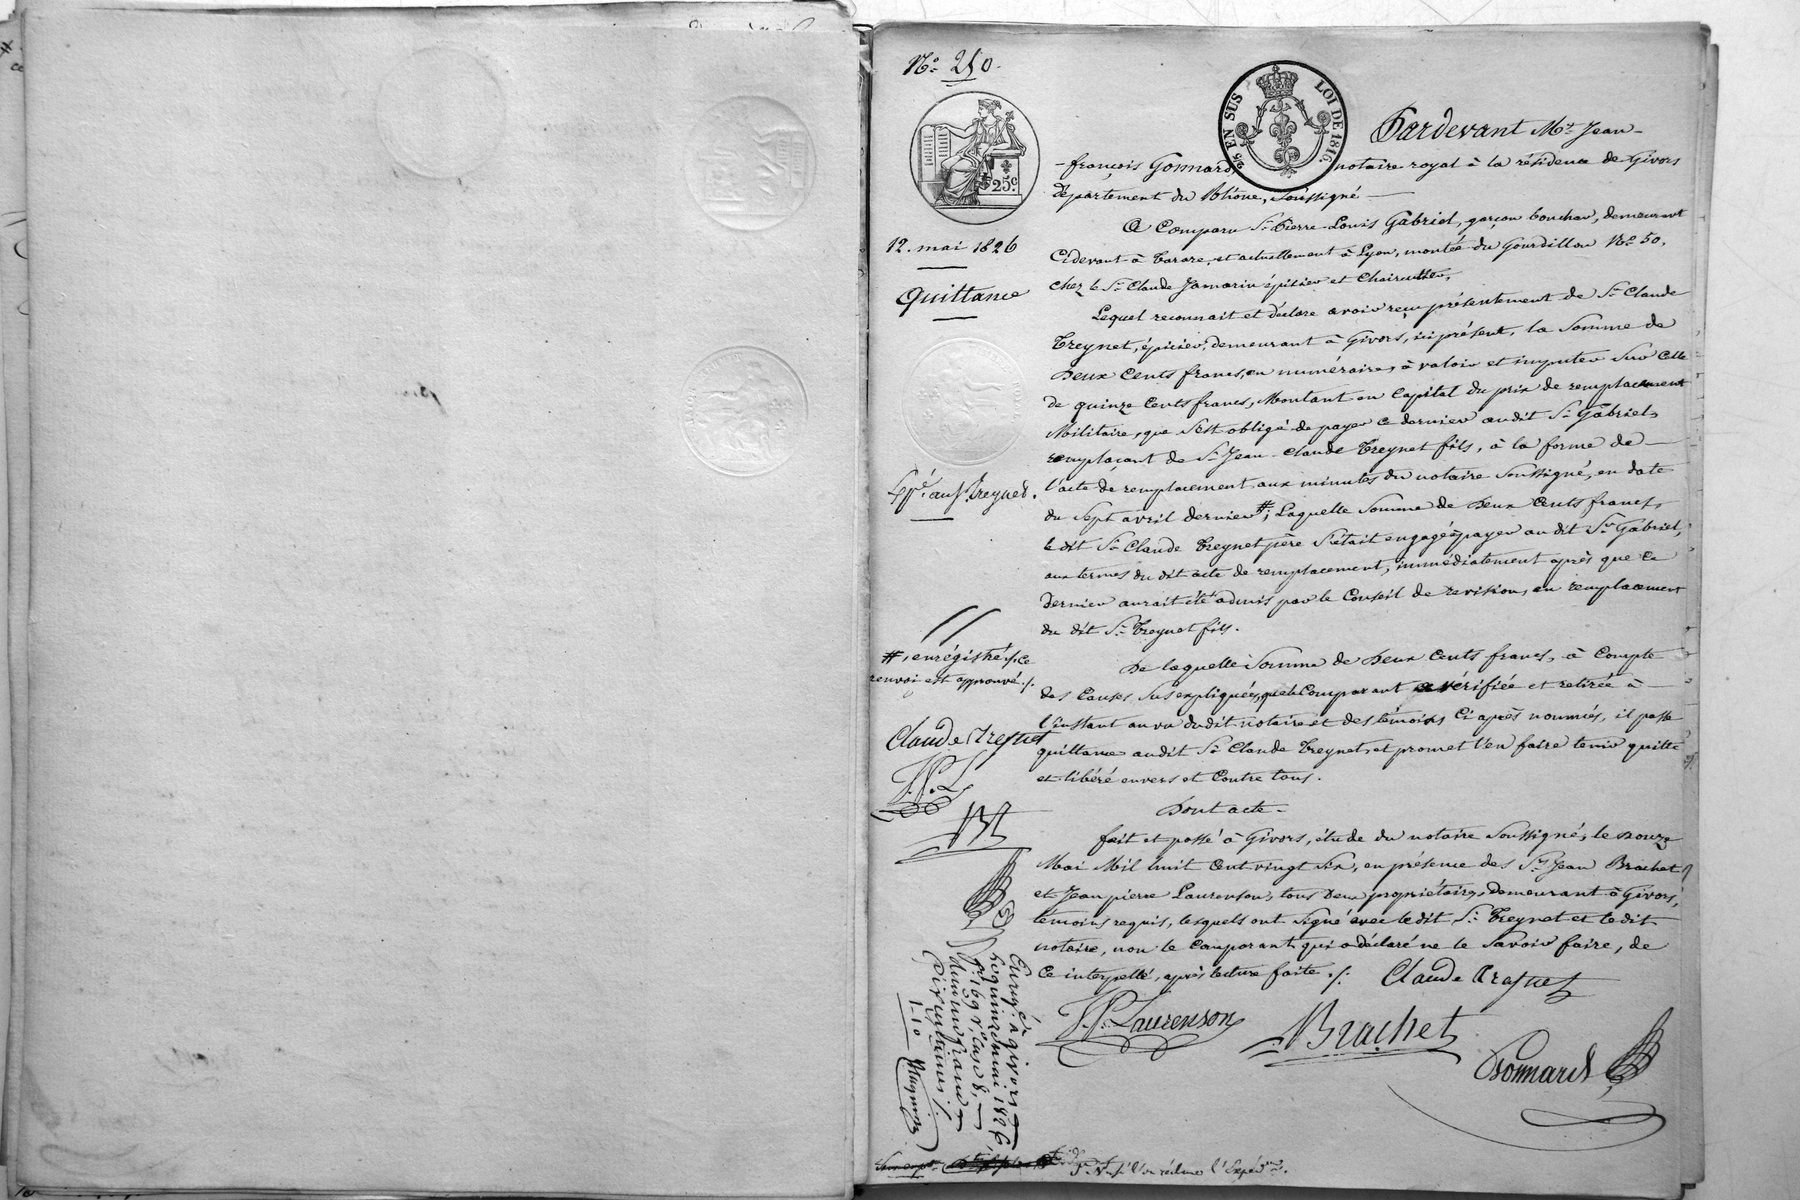 N.° 250.
25 EN SUS LOI DE 1816.
25.c
12. mai 1826
Quittance
Pardevant M.e Jean-
-françois Gonnard, notaire royal à la résidence de Givors
département du Rhône, soussigné
A Comparu S.r Pierre-Louis Gabriel, garçon boucher, demeurant
Cidevant à Tarare, et actuellement à Lyon, montée du Gourdillon N.° 50,
chez le S.r Claude Jamarin épicier et Chaircutier,
Lequel reconnait et déclare avoir reçu présentement de S.r Claude
Treynet, épicier, demeurant à Givors, ici présent, la Somme de
deux Cents francs, en numéraire, à valoir et imputer sur Celle
de quinze Cents francs, Montant en Capital du prix de remplacement
Militaire, que s'est obligé de payer ce dernier audit S.r Gabriel,
remplaçant de S.r Jean-Claude Treynet fils, à la forme de
l'acte de remplacement aux minutes du notaire soussigné, en date
du Sept avril dernier #; Laquelle Somme de deux Cents francs,
le dit S.r Claude Treynet père s'était engagé à payer au dit S.r Gabriel,
aux termes du dit acte de remplacement, immédiatement après que Ce
dernier aurait été admis par le Conseil de revision, en remplacement
du dit S.r Treynet fils.
De laquelle Somme de deux Cents francs, à Compte
des Causes susexpliquées, que le Comparant a vérifiée et retirée à
l'instant au vu du dit notaire et des témoins Ci après nommés, il passe
quittance audit S.r Claude Treynet, et promet l'en faire tenir quitte
et libéré envers et Contre tous.
Dont acte.
fait et passé à Givors, étude du notaire soussigné, le douze
Mai Mil huit Cent vingt six, en présence des S.rs Jean Brachet
et Jean pierre Laurenson, tous deux propriétaires, demeurant à Givors,
témoins requis, lesquels ont signé avec le dit S.r Treynet et le dit
notaire, non le Comparant qui a déclaré ne le Savoir faire, de
Ce interpellé, après lecture faite ./.
Claude Treynet
J.P. Laurenson
Brachet
Gonnard
au S.r Treynet.
#, enrégistré ./. Ce
renvoi est approuvé ./.
Claude Treynet
J.P.L
Enreg.é à givors
le quinze mai 1826,
f.° 169 v.° Case 8,
reçu un franc
dix centimes ./.
1-10